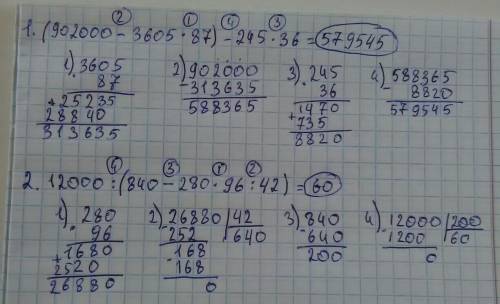 ② ① ④ ③
1. (902000 - 3605 · 87) - 245 · 36 = 579545
1) 3605 2) 902000 3) 245 4) 588365
87 - 313635 36 - 8820
+ 25235 588365 1470 579545
28840 + 735
313635 8820
④ ③ ① ②
2. 12000 : (840 - 280 · 96 : 42) = 60
1) 280 2) 26880 | 42 3) 840 4) 12000 | 200
· 96 - 252 | 640 - 640 - 1200 | 60
+ 1680 - 168 200 0
2520 168
26880 0